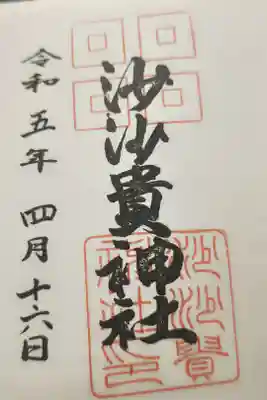 沙沙貴神社
令和五年 四月 十六日
沙沙貴
神社之印